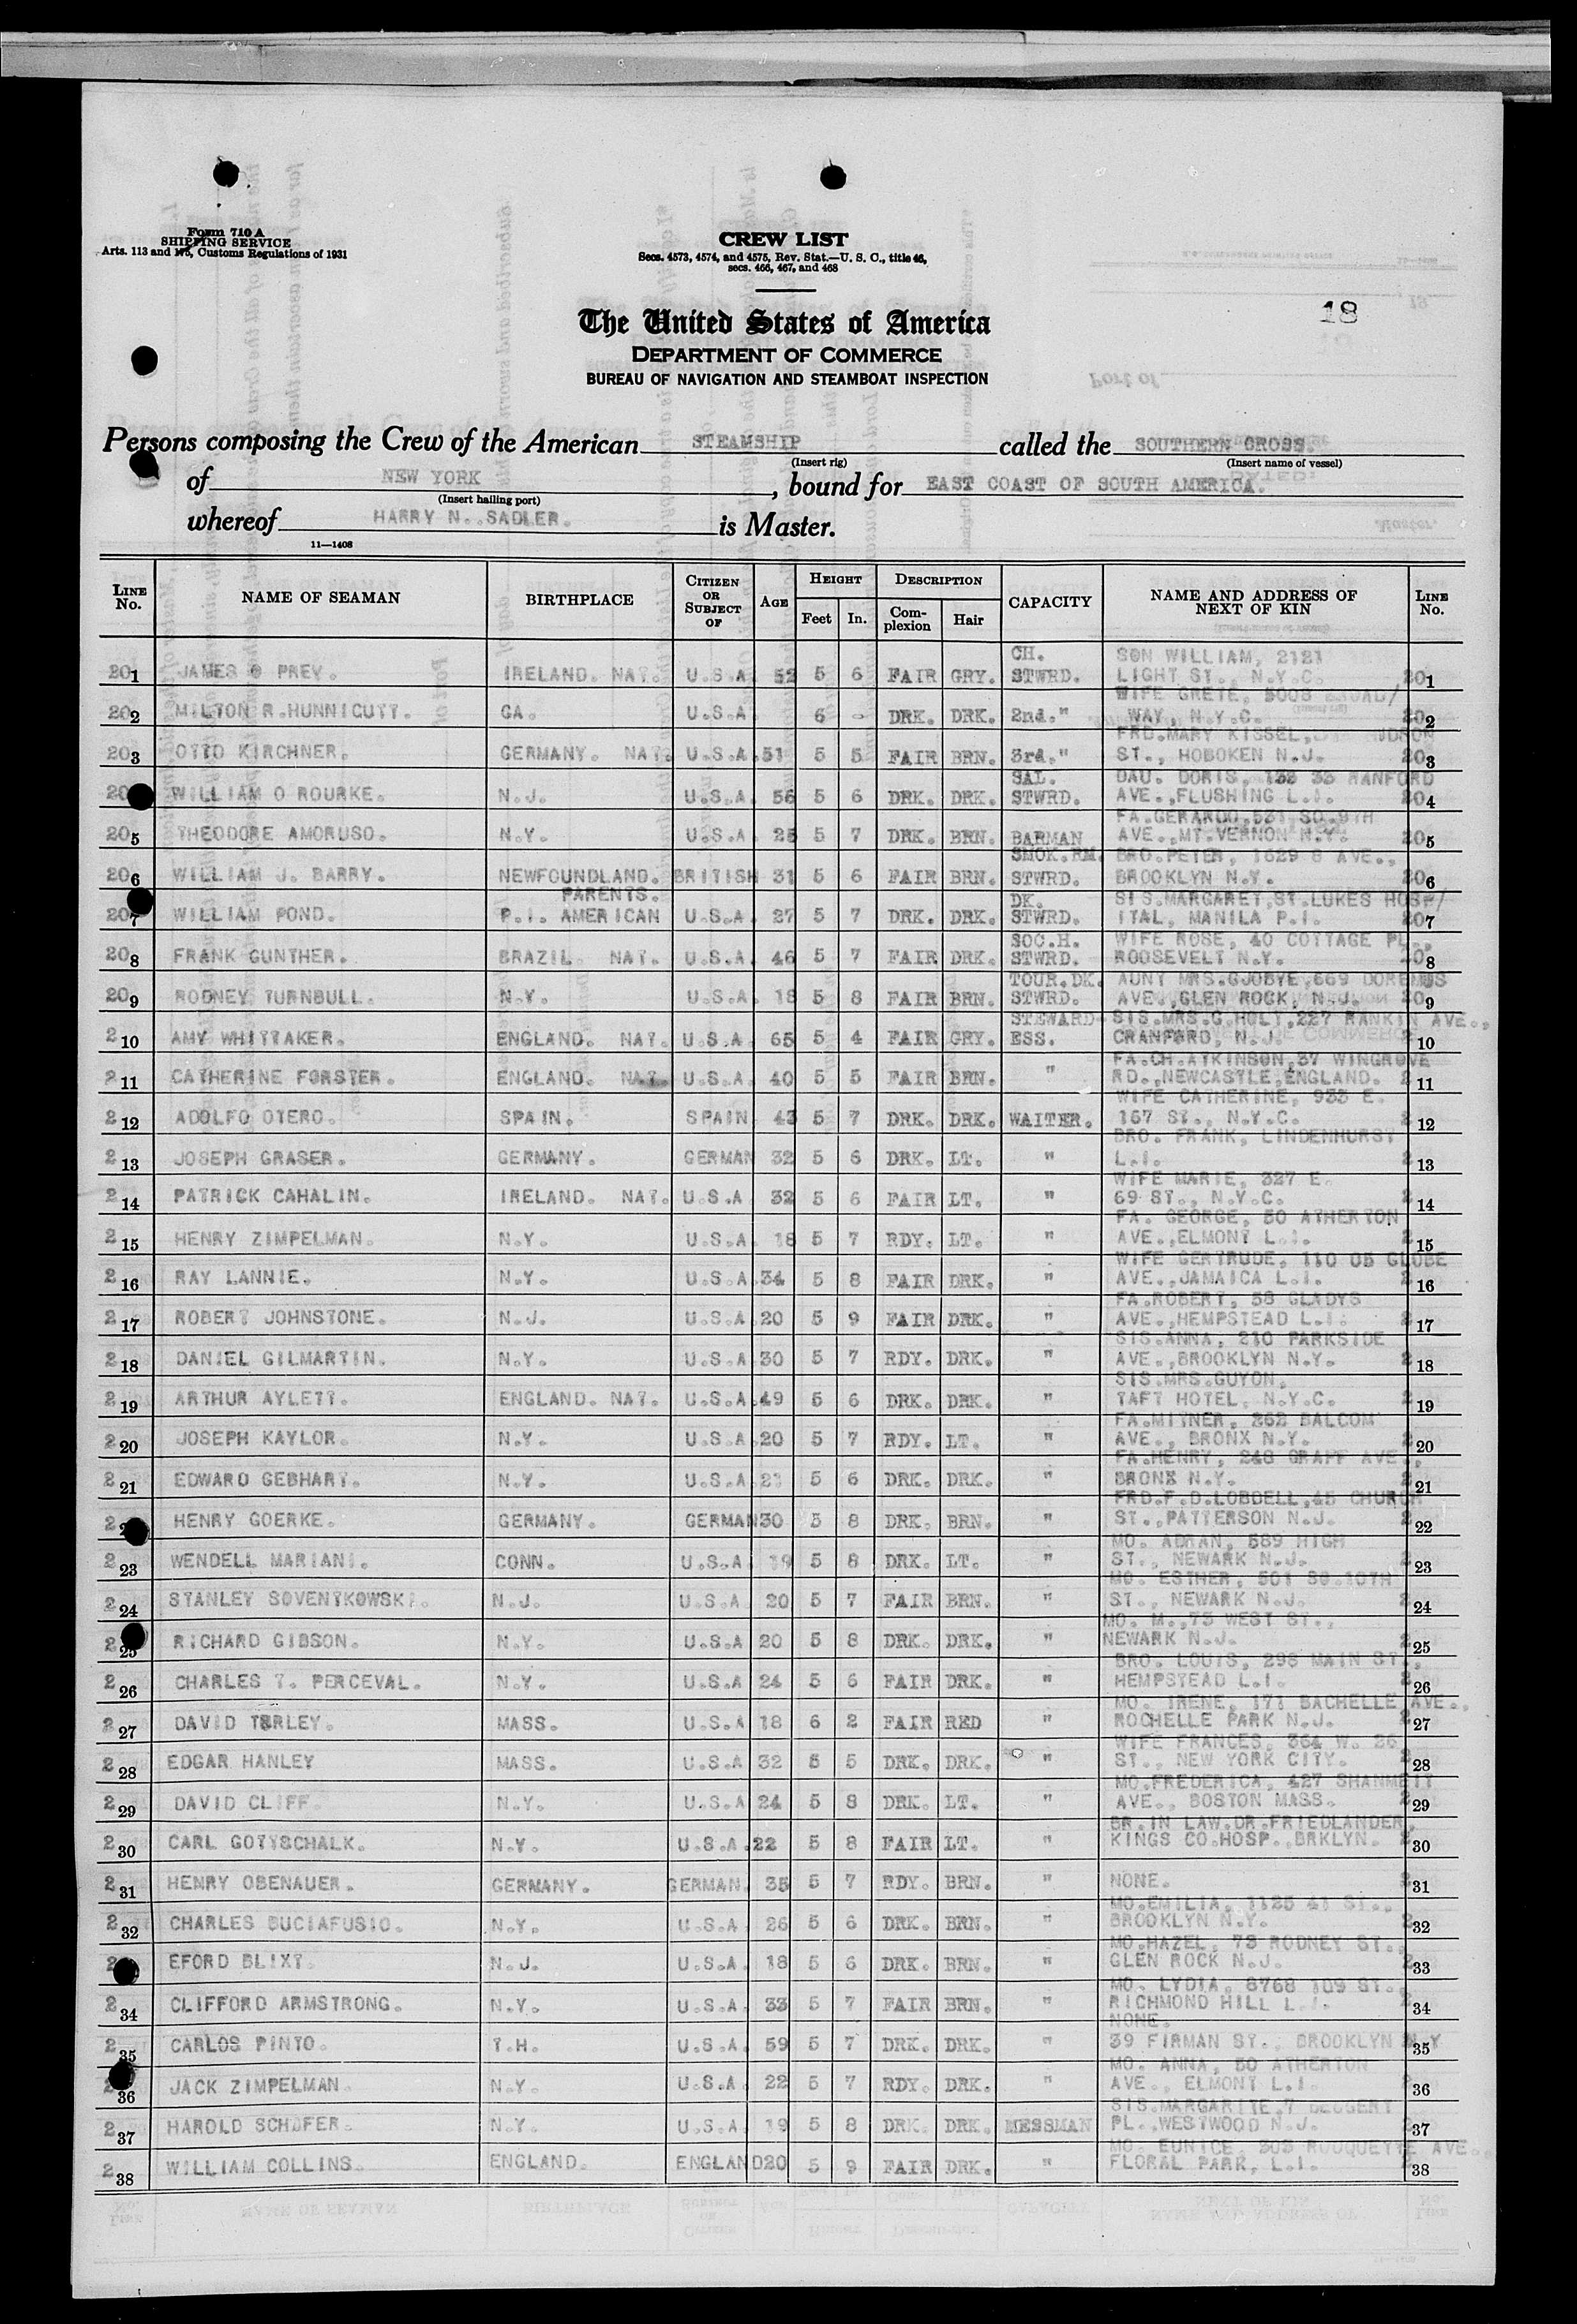 Form 710 A
SHIPPING SERVICE
Arts. 113 and 175, Customs Regulations of 1931
CREW LIST
Secs. 4573, 4574, and 4575, Rev. Stat.—U. S. C., title 46,
secs. 466, 467, and 468
The United States of America
DEPARTMENT OF COMMERCE
BUREAU OF NAVIGATION AND STEAMBOAT INSPECTION
18
Persons composing the Crew of the American STEAMSHIP called the SOUTHERN CROSS.
(Insert rig) (Insert name of vessel)
of NEW YORK, bound for EAST COAST OF SOUTH AMERICA.
(Insert hailing port)
whereof HARRY N. SADLER. is Master.
11—1408
LINE No. NAME OF SEAMAN BIRTHPLACE CITIZEN OR SUBJECT OF AGE HEIGHT Feet In. DESCRIPTION Complexion Hair CAPACITY NAME AND ADDRESS OF NEXT OF KIN LINE No.
CH. SON WILLIAM, 2121
201 JAMES O PREY. IRELAND. NAT. U.S.A. 52 5 6 FAIR GRY. STWRD. LIGHT ST., N.Y.C. 201
WIFE GRETE, 5008 BROAD/
202 MILTON R.HUNNICUTT. GA. U.S.A. 6 - DRK. DRK. 2nd." WAY, N.Y.C. 202
FRD.MARY KISSEL,
203 OTTO KIRCHNER. GERMANY. NAT. U.S.A. 51 5 5 FAIR BRN. 3rd." ST., HOBOKEN N.J. 203
SAL. DAU. DORIS, 132 33 HANFORD
20 WILLIAM O ROURKE. N.J. U.S.A. 56 5 6 DRK. DRK. STWRD. AVE.,FLUSHING L.I. 204
FA.GERARDO,531 SO.9TH
205 THEODORE AMORUSO. N.Y. U.S.A. 25 5 7 DRK. BRN. BARMAN AVE.,MT.VERNON N.Y. 205
SMOK.RM. BRO.PETER, 1629 8 AVE.,
206 WILLIAM J. BARRY. NEWFOUNDLAND. BRITISH 31 5 6 FAIR BRN. STWRD. BROOKLYN N.Y. 206
PARENTS. DK. SIS.MARGARET,ST.LUKES HOSP/
207 WILLIAM POND. P.I. AMERICAN U.S.A. 27 5 7 DRK. DRK. STWRD. ITAL, MANILA P.I. 207
SOC.H. WIFE ROSE, 40 COTTAGE PL.,
208 FRANK GUNTHER. BRAZIL. NAT. U.S.A. 46 5 7 FAIR DRK. STWRD. ROOSEVELT N.Y. 208
TOUR.DK. AUNT MRS.GJOBYE,669 DOREMUS
209 RODNEY TURNBULL. N.Y. U.S.A. 18 5 8 FAIR BRN. STWRD. AVE.,GLEN ROCK, N.J. 209
STEWARD- SIS.MRS.G.HOLT,227 RANKIN AVE.,
210 AMY WHITTAKER. ENGLAND. NAT. U.S.A. 65 5 4 FAIR GRY. ESS. CRANFORD, N.J. 210
FA.CH.ATKINSON,37 WINGROVE
211 CATHERINE FORSTER. ENGLAND. NAT. U.S.A. 40 5 5 FAIR BRN. " RD.,NEWCASTLE,ENGLAND. 211
WIFE CATHERINE, 933 E.
212 ADOLFO OTERO. SPAIN. SPAIN 43 5 7 DRK. DRK. WAITER. 167 ST., N.Y.C. 212
BRO. FRANK, LINDENHURST
213 JOSEPH GRASER. GERMANY. GERMAN 32 5 6 DRK. LT. " L.I. 213
WIFE MARIE, 327 E.
214 PATRICK CAHALIN. IRELAND. NAT. U.S.A 32 5 6 FAIR LT. " 69 ST., N.Y.C. 214
FA. GEORGE, 50 ATHERTON
215 HENRY ZIMPELMAN. N.Y. U.S.A. 18 5 7 RDY. LT. " AVE.,ELMONT L.I. 215
WIFE GERTRUDE, 110 05 GLOBE
216 RAY LANNIE. N.Y. U.S.A. 34 5 8 FAIR DRK. " AVE.,JAMAICA L.I. 216
FA.ROBERT, 58 GLADYS
217 ROBERT JOHNSTONE. N.J. U.S.A 20 5 9 FAIR DRK. " AVE.,HEMPSTEAD L.I. 217
SIS.ANNA, 210 PARKSIDE
218 DANIEL GILMARTIN. N.Y. U.S.A 30 5 7 RDY. DRK. " AVE.,BROOKLYN N.Y. 218
SIS.MRS.GUYON,
219 ARTHUR AYLETT. ENGLAND. NAT. U.S.A. 49 5 6 DRK. DRK. " TAFT HOTEL, N.Y.C. 219
FA.MITNER, 262 BALCOM
220 JOSEPH KAYLOR. N.Y. U.S.A. 20 5 7 RDY. LT. " AVE., BRONX N.Y. 220
FA.HENRY, 248 GRAFF AVE.,
221 EDWARD GEBHART. N.Y. U.S.A. 5 6 DRK. DRK. " BRONX N.Y. 221
FRD.F.D.LOBDELL,45 CHURCH
2 HENRY GOERKE. GERMANY. GERMAN 30 5 8 DRK. BRN. " ST.,PATTERSON N.J. 222
MO. ADRAN, 589 HIGH
223 WENDELL MARIANI. CONN. U.S.A. 19 5 8 DRK. LT. " ST., NEWARK N.J. 223
MO. ESTHER, 501 SO.10TH
224 STANLEY SOVENTKOWSKI. N.J. U.S.A. 20 5 7 FAIR BRN. " ST., NEWARK N.J. 224
MO. M.,75 WEST ST.,
225 RICHARD GIBSON. N.Y. U.S.A 20 5 8 DRK. DRK. " NEWARK N.J. 225
BRO. LOUIS, 298 MAIN ST.,
226 CHARLES T. PERCEVAL. N.Y. U.S.A 24 5 6 FAIR DRK. " HEMPSTEAD L.I. 226
MO. IRENE, 171 BACHELLE AVE.,
227 DAVID TURLEY. MASS. U.S.A 18 6 2 FAIR RED " ROCHELLE PARK N.J. 227
WIFE FRANCES, 364 W. 26
228 EDGAR HANLEY MASS. U.S.A 32 5 5 DRK. DRK. " ST., NEW YORK CITY. 228
MO.FREDERICA, 427 SHAWMUTT
229 DAVID CLIFF. N.Y. U.S.A 24 5 8 DRK. LT. " AVE., BOSTON MASS. 229
BR.IN LAW.DR.FRIEDLANDER,
230 CARL GOTTSCHALK. N.Y. U.S.A. 22 5 8 FAIR LT. " KINGS CO.HOSP.,BRKLYN. 230
231 HENRY OBENAUER. GERMANY. GERMAN. 35 5 7 RDY. BRN. " NONE. 231
MO.EMILIA, 1125 41 ST.,
232 CHARLES BUCIAFUSIO. N.Y. U.S.A 26 5 6 DRK. BRN. " BROOKLYN N.Y. 232
MO.HAZEL, 73 RODNEY ST.,
2 EFORD BLIXT. N.J. U.S.A. 18 5 6 DRK. BRN. " GLEN ROCK N.J. 233
MO. LYDIA, 8768 109 ST.,
234 CLIFFORD ARMSTRONG. N.Y. U.S.A. 33 5 7 FAIR BRN. " RICHMOND HILL L.I. 234
NONE.
235 CARLOS PINTO. T.H. U.S.A. 59 5 7 DRK. DRK. " 39 FIRMAN ST., BROOKLYN N.Y 235
MO. ANNA, 50 ATHERTON
36 JACK ZIMPELMAN. N.Y. U.S.A. 22 5 7 RDY. DRK. " AVE., ELMONT L.I. 36
SIS.MARGARITE,7
237 HAROLD SCHAFER. N.Y. U.S.A. 19 5 8 DRK. DRK. MESSMAN PL.,WESTWOOD N.J. 237
MO. EUNICE, AVE.,
238 WILLIAM COLLINS. ENGLAND. ENGLAND 20 5 9 FAIR DRK. " FLORAL PARK, L.I. 238